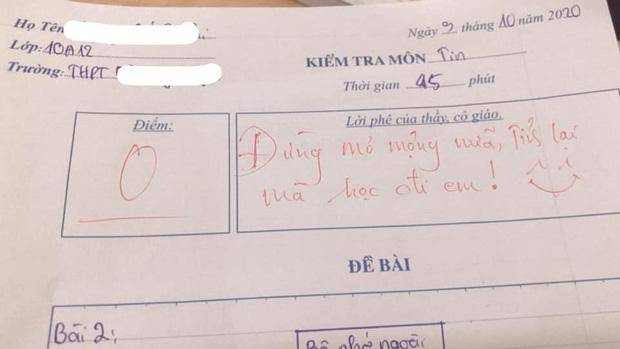 Họ Tên
Ngày 9 tháng 10 năm 2020
Lớp: 10A12
KIỂM TRA MÔN Tin
Trường: THPT
Thời gian 45 phút
Điểm:
0
Lời phê của thầy, cô giáo.
Đừng mơ mộng nữa, Tỉnh lại
mà học đi em!
ĐỀ BÀI
Bài 2:
Bộ nhớ ngoài